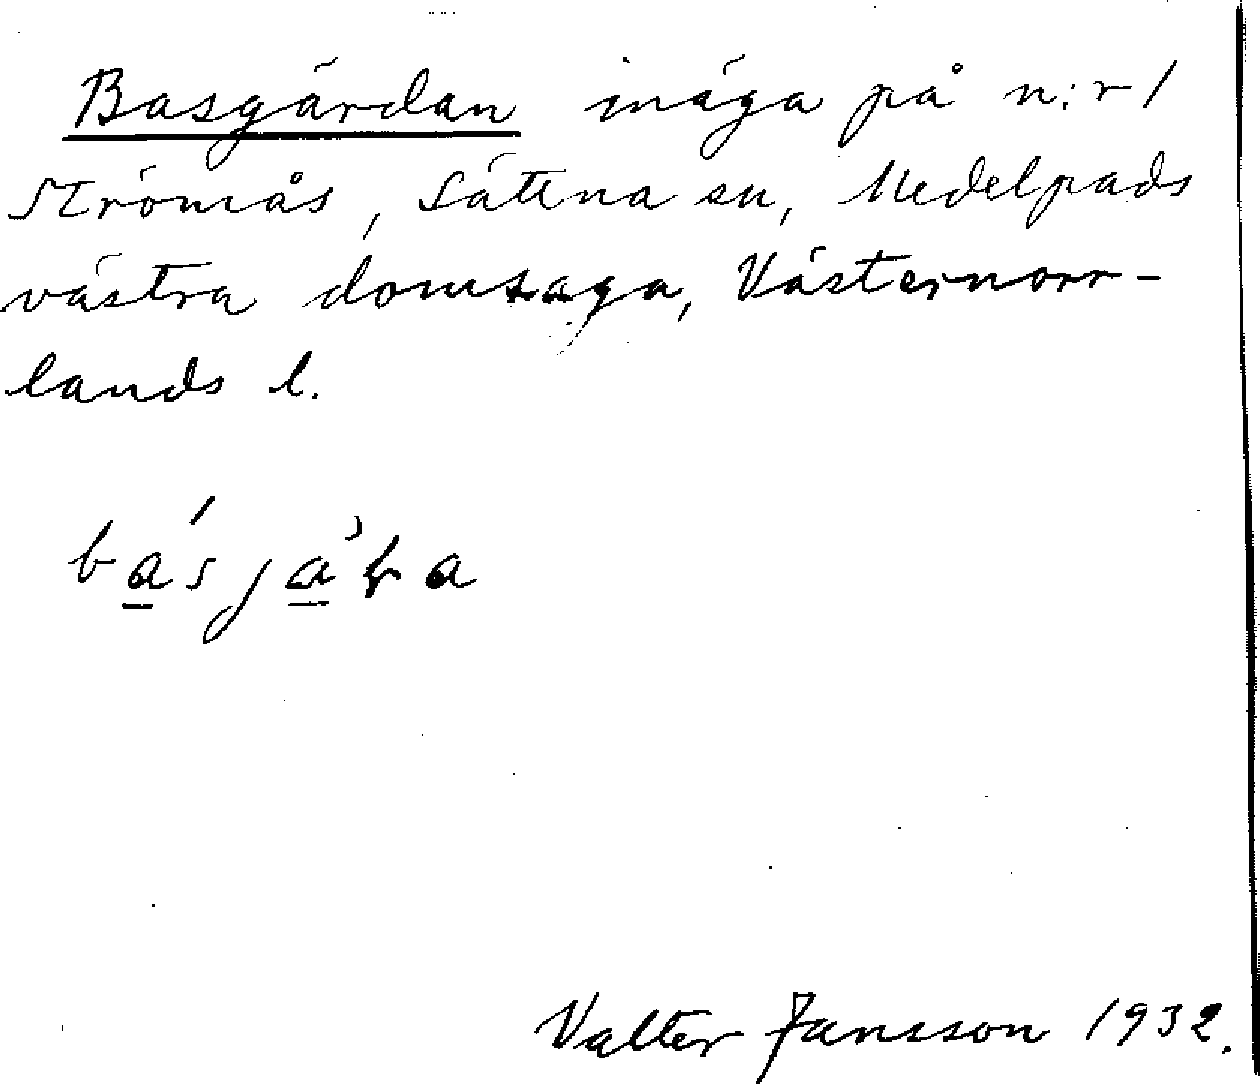 Basgärdan inäga på n:r 1
Strömås, Sättna sn, Medelpads
västra domsaga, Västernorr-
lands l.
Valter Jansson 1932.